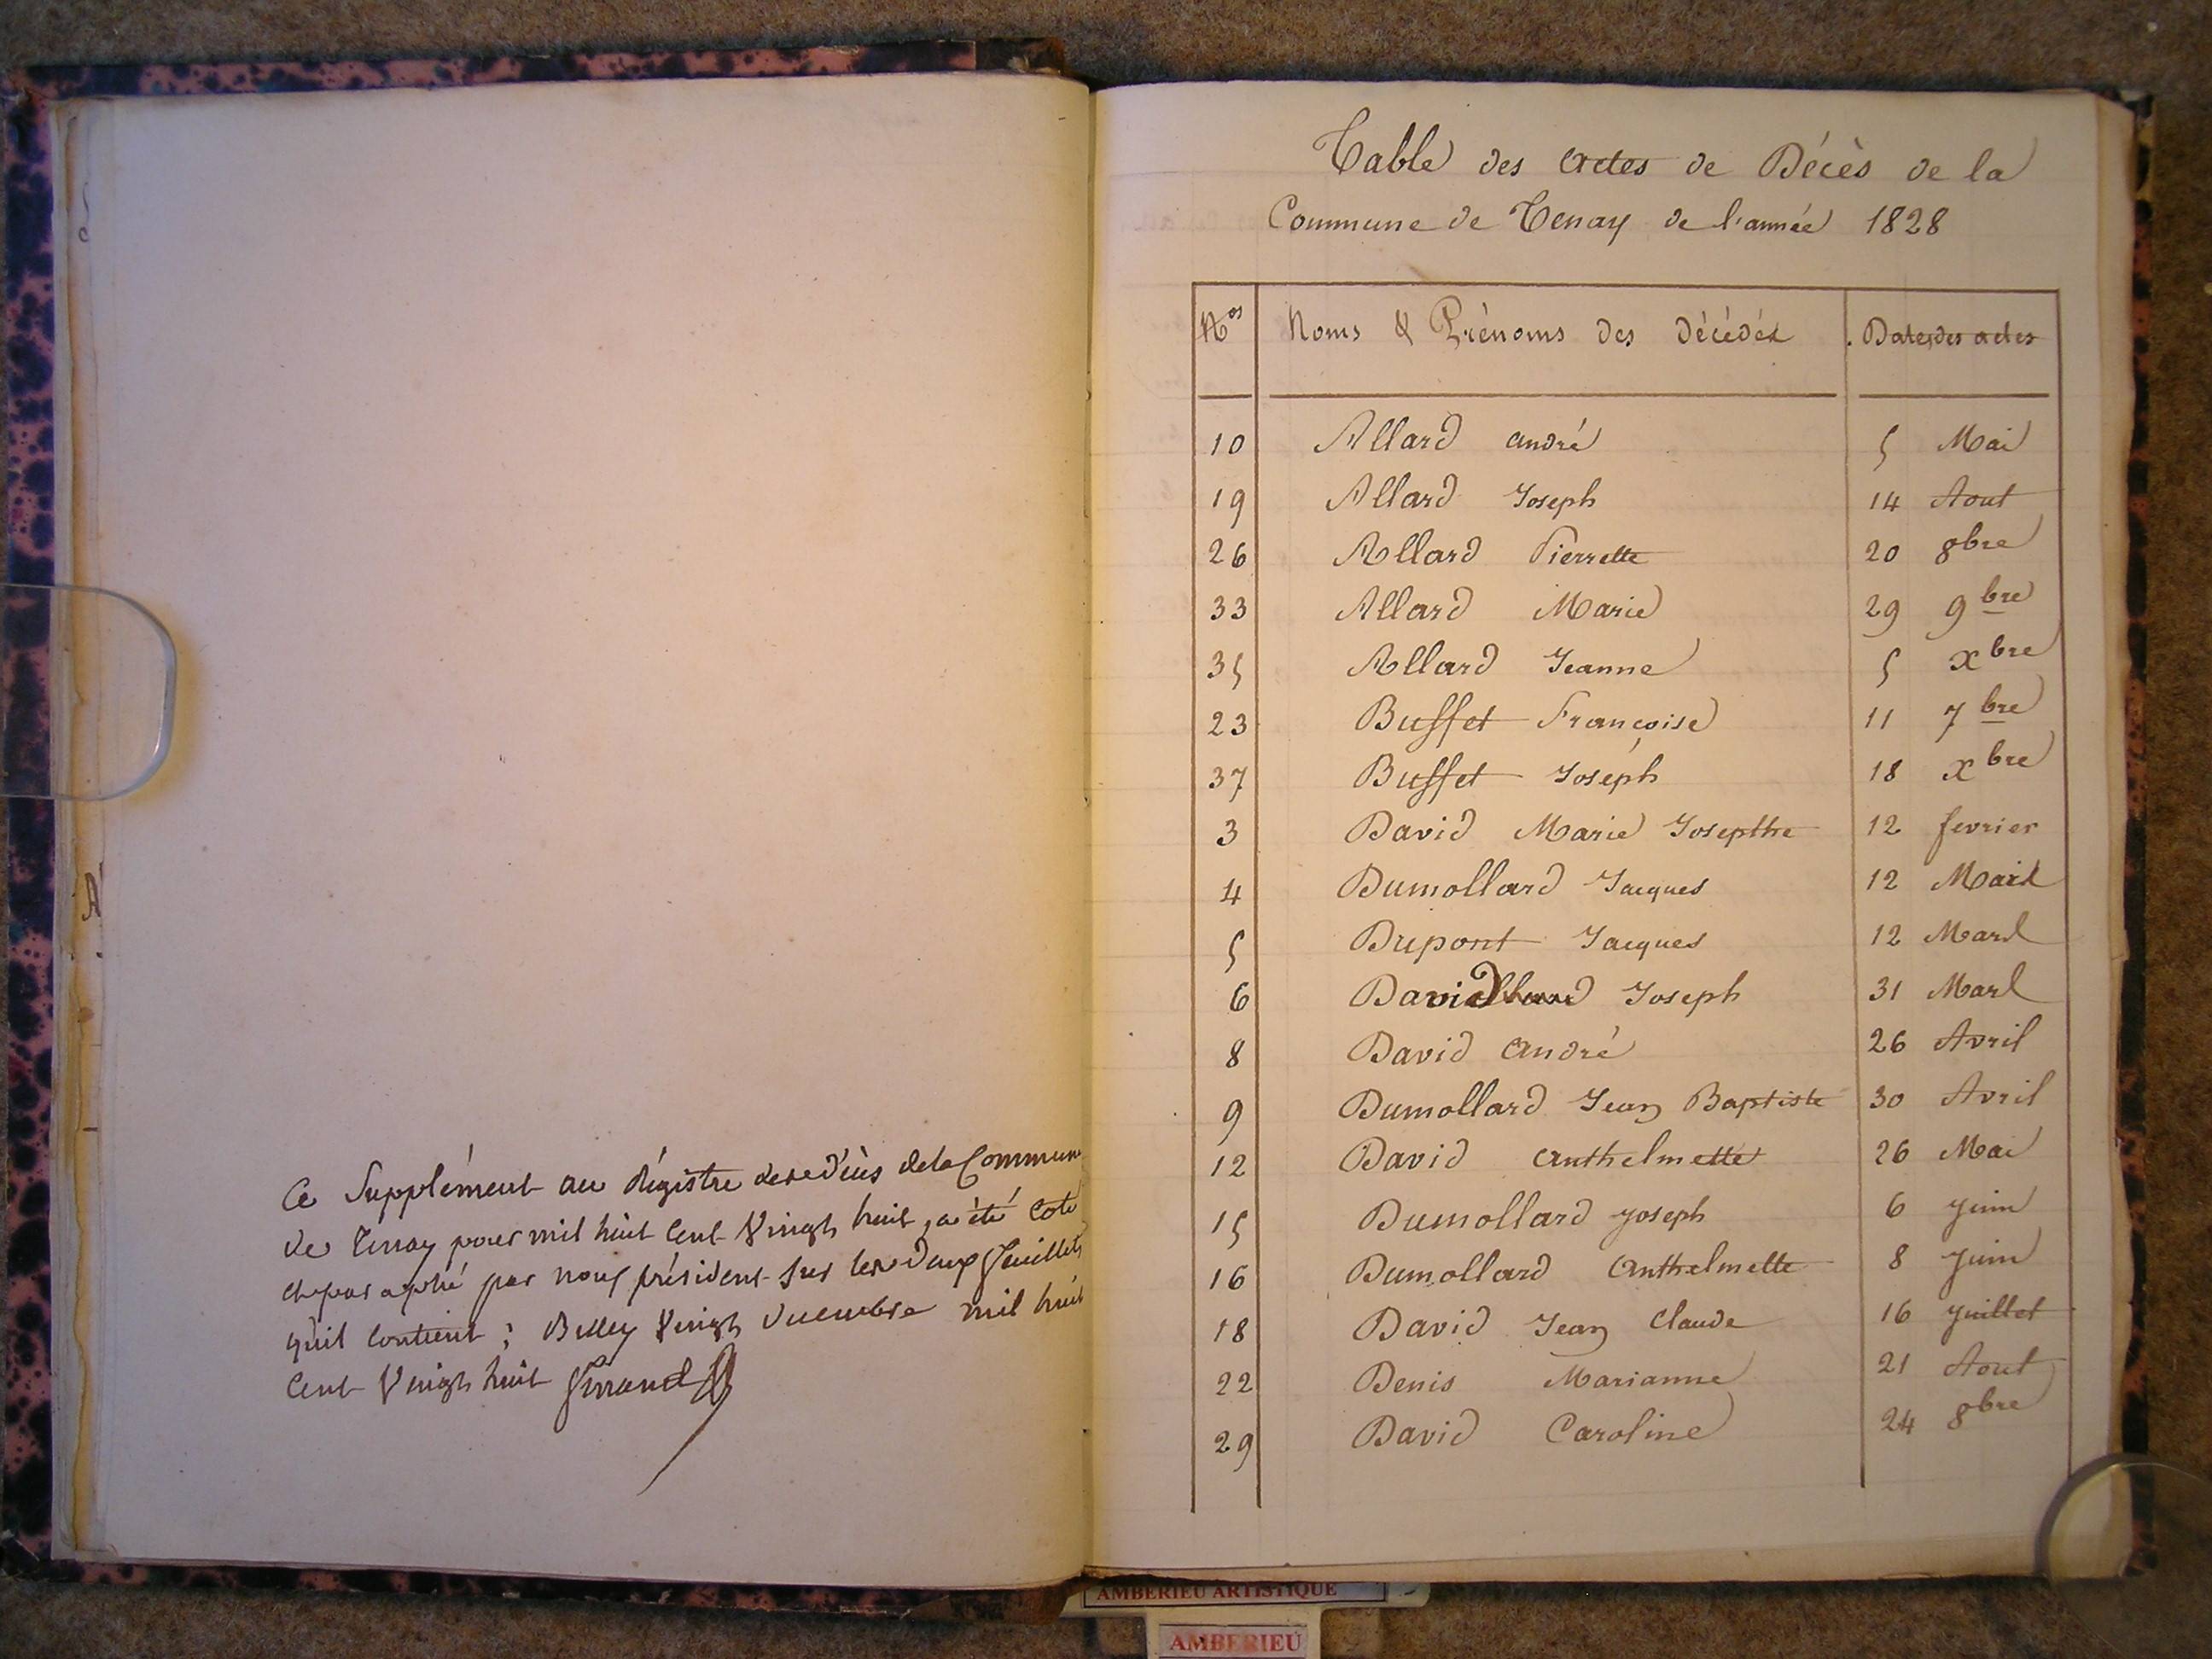 Ce Supplément au Régistre des décès de la Commune
de Tenay pour mil huit cent vingt huit, a été coté
et paraphé par nous président sur les deux feuillets
qu'il contient ; Belley vingt décembre mil huit
cent vingt huit
Table des actes de Décès de la
Commune de Tenay de l'année 1828
Nos Noms & Prénoms des Décédés Dates des actes
10 Allard andré 5 Mai
19 Allard Joseph 14 Aout
26 Allard Pierrette 20 8bre
33 Allard Marie 29 9bre
35 Allard Jeanne 5 xbre
23 Buffet Françoise 11 7bre
37 Buffet Joséph 18 xbre
3 David Marie Josepthe 12 fevrier
4 Dumollard Jacques 12 Mars
5 Dupont Jacques 12 Mars
6 David Joseph 31 Mars
8 David andré 26 Avril
9 Dumollard Jean Baptiste 30 Avril
12 David anthelmette 26 Mai
15 Dumollard joseph 6 juin
16 Dumollard anthelmette 8 juin
18 David Jean Claude 16 juillet
22 Denis Marianne 21 Aout
29 David Caroline 24 8bre
AMBERIEU ARTISTIQUE
AMBERIEU